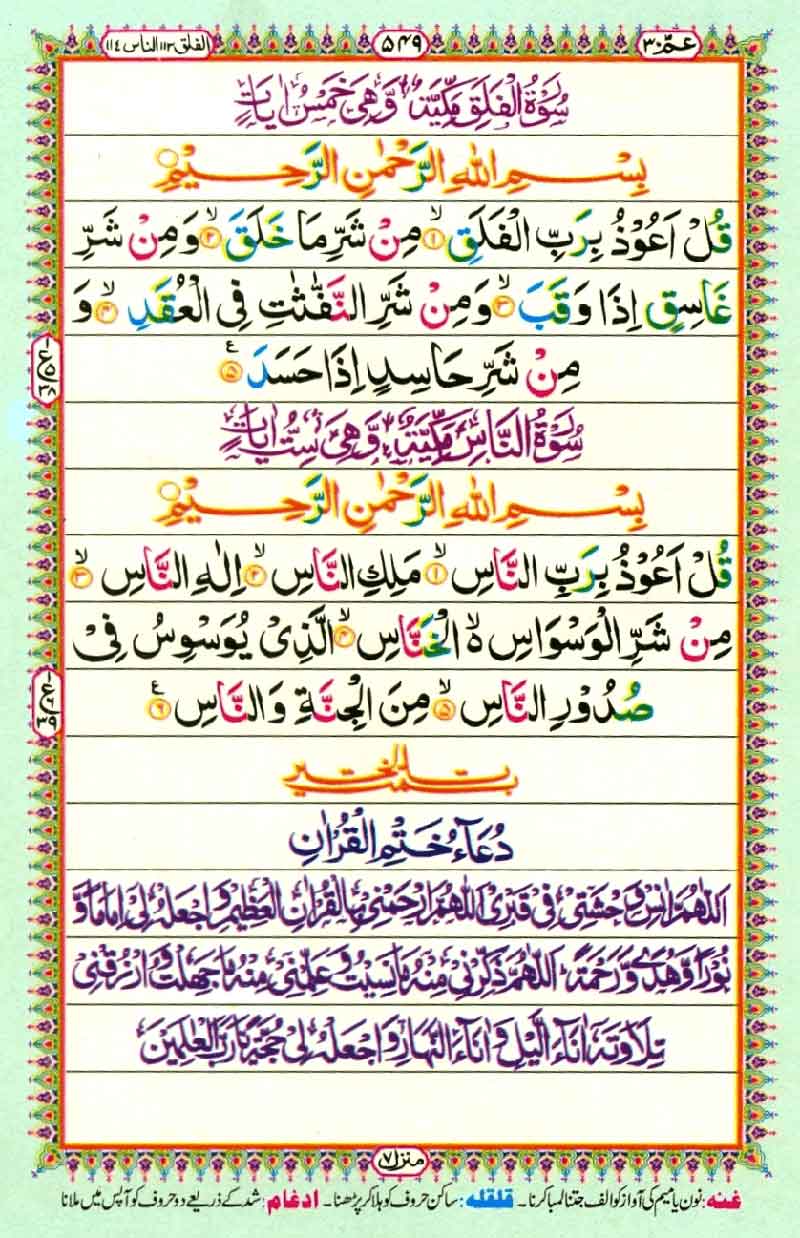 عمّ ٣٠
۵۴۹
الفلق ١١٣ الناس ١١٤
سُوْرَةُ الْفَلَقِ مَكِّيَّةٌ وَّهِيَ خَمْسُ اٰيَاتٍ
بِسْمِ اللّٰهِ الرَّحْمٰنِ الرَّحِيْمِ
قُلْ اَعُوْذُ بِرَبِّ الْفَلَقِ ۙ﴿۱﴾ مِنْ شَرِّ مَا خَلَقَ ۙ﴿۲﴾ وَمِنْ شَرِّ
غَاسِقٍ اِذَا وَقَبَ ۙ﴿۳﴾ وَمِنْ شَرِّ النَّفّٰثٰتِ فِی الْعُقَدِ ۙ﴿۴﴾ وَ
مِنْ شَرِّ حَاسِدٍ اِذَا حَسَدَ ﴿۵﴾
سُوْرَةُ النَّاسِ مَكِّيَّةٌ وَّهِيَ سِتُّ اٰيَاتٍ
بِسْمِ اللّٰهِ الرَّحْمٰنِ الرَّحِيْمِ
قُلْ اَعُوْذُ بِرَبِّ النَّاسِ ۙ﴿۱﴾ مَلِكِ النَّاسِ ۙ﴿۲﴾ اِلٰهِ النَّاسِ ۙ﴿۳﴾
مِنْ شَرِّ الْوَسْوَاسِ ۙ۬ الْخَنَّاسِ ۙ﴿۴﴾ الَّذِیْ یُوَسْوِسُ فِیْ
صُدُوْرِ النَّاسِ ۙ﴿۵﴾ مِنَ الْجِنَّةِ وَالنَّاسِ ﴿۶﴾
دُعَآءُ خَتْمِ الْقُرْاٰنِ
اَللّٰهُمَّ اٰنِسْ وَحْشَتِیْ فِیْ قَبْرِیْ اَللّٰهُمَّ ارْحَمْنِیْ بِالْقُرْاٰنِ الْعَظِيْمِ وَاجْعَلْهُ لِیْ اِمَامًا وَّ
نُوْرًا وَّهُدًی وَّرَحْمَةً اَللّٰهُمَّ ذَكِّرْنِیْ مِنْهُ مَا نَسِيْتُ وَعَلِّمْنِیْ مِنْهُ مَا جَهِلْتُ وَارْزُقْنِیْ
تِلَاوَتَهٗ اٰنَآءَ الَّيْلِ وَاٰنَآءَ النَّهَارِ وَاجْعَلْهُ لِیْ حُجَّةً يَّا رَبَّ الْعٰلَمِيْنَ
منزل ۷
غنه: نون یا میم کی آواز کو الف جتنا لمبا کرنا۔ قلقله: ساکن حروف کو ہلا کر پڑھنا۔ ادغام: شد کے ذریعے دو حروف کو آپس میں ملانا